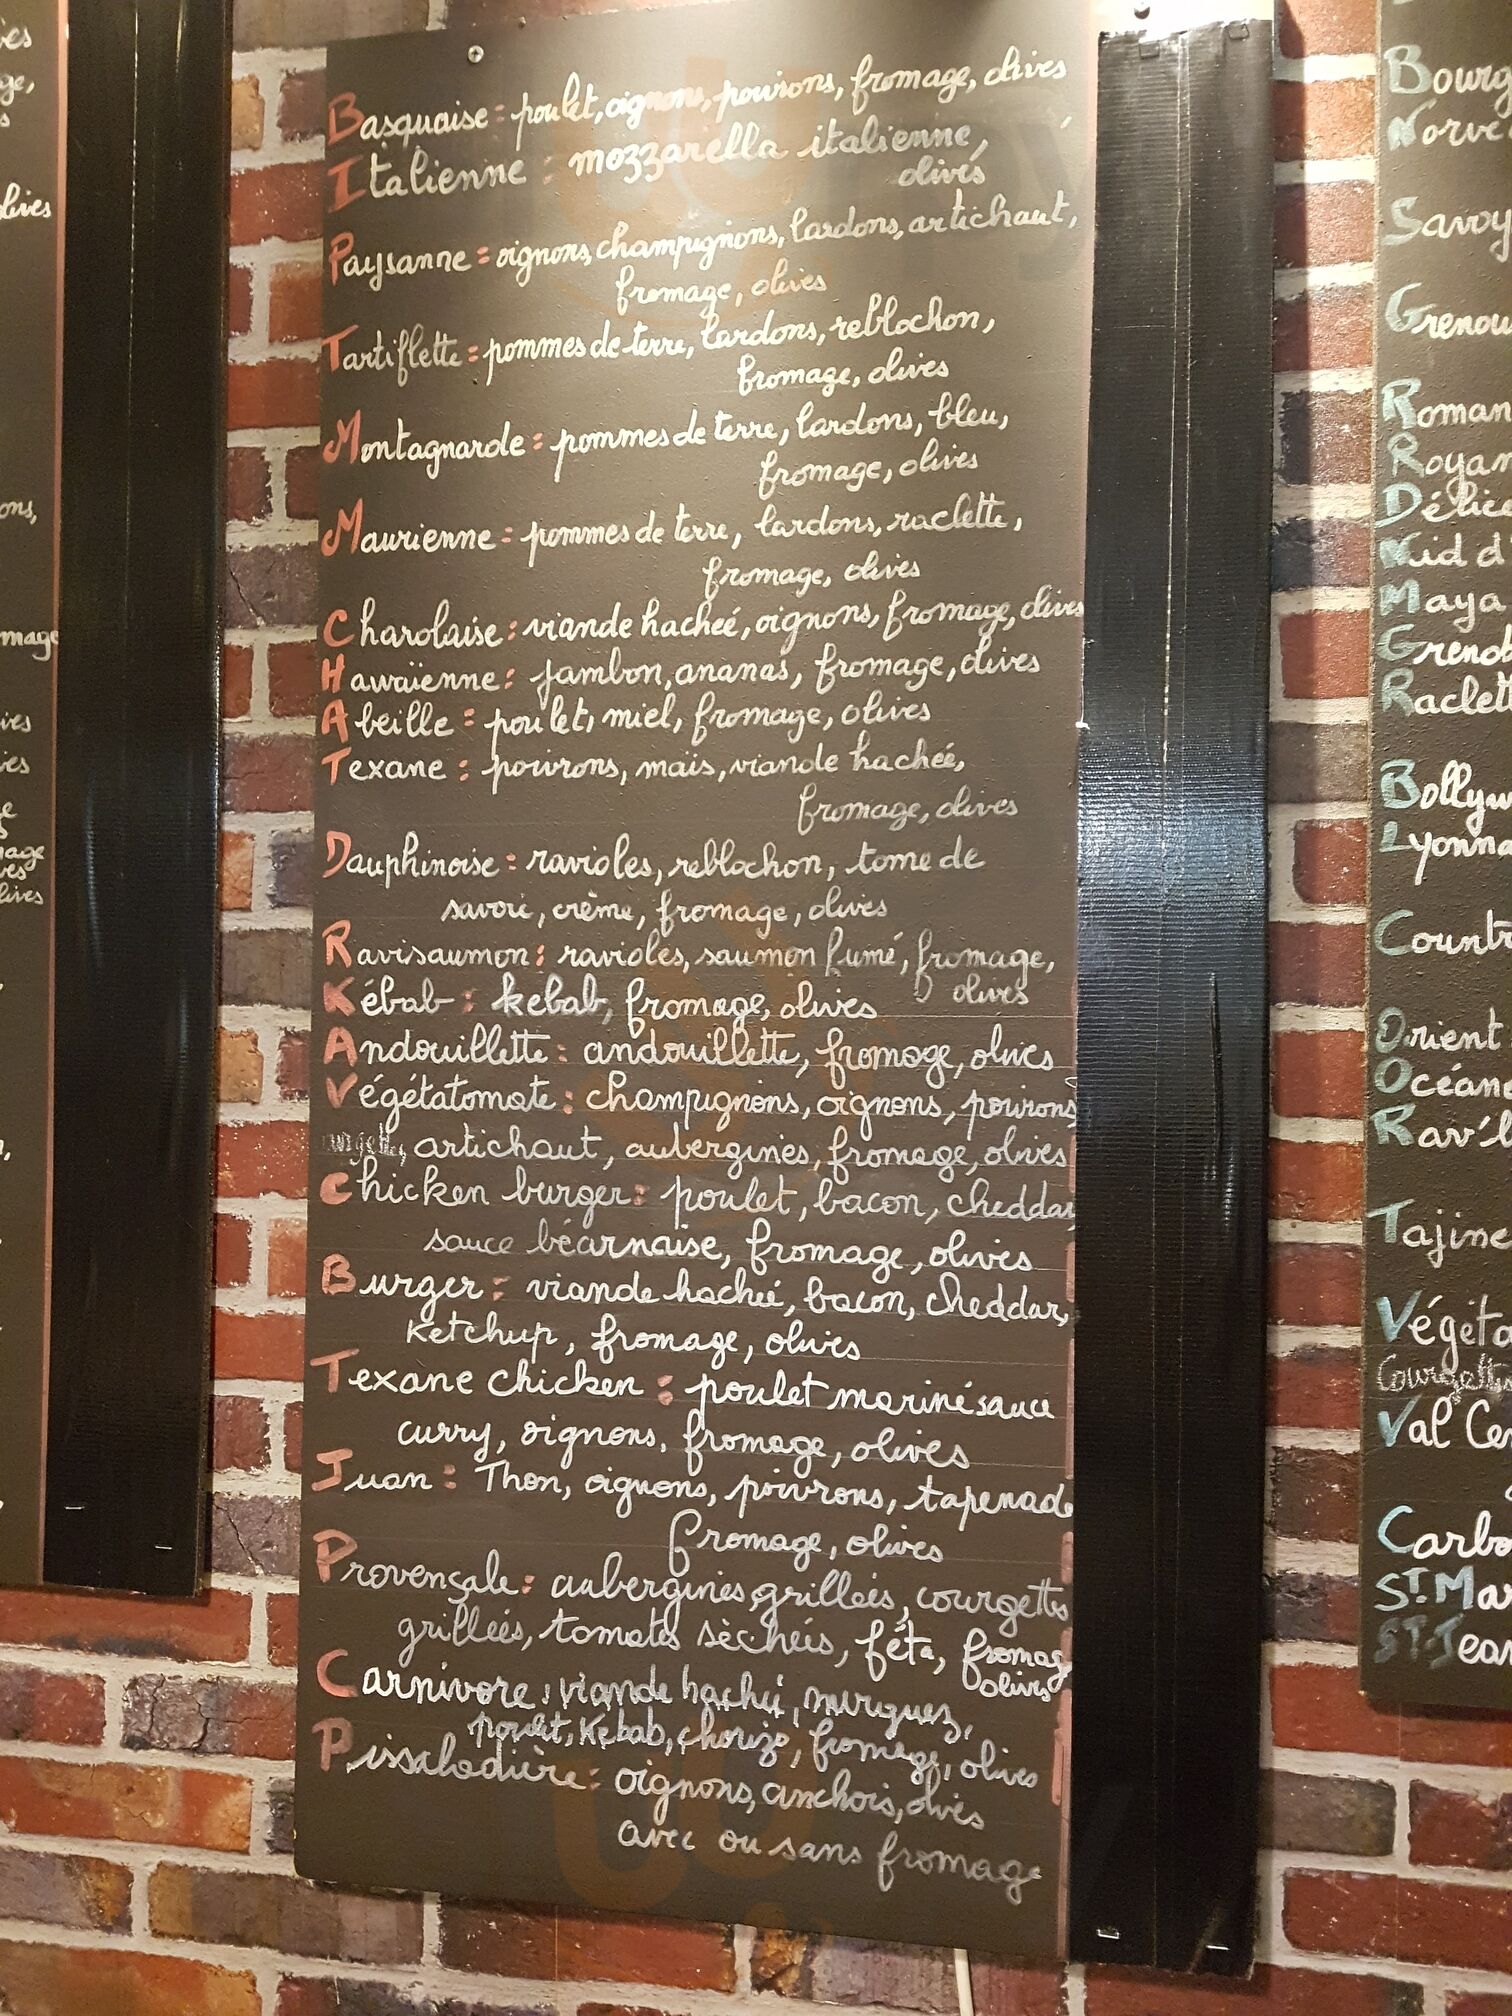 Basquaise : poulet, oignons, poivrons, fromage, olives
Italienne : mozzarella italienne,
olives
Paysanne : oignons, champignons, lardons, artichaut,
fromage, olives
Tartiflette : pommes de terre, lardons, reblochon,
fromage, olives
Montagnarde : pommes de terre, lardons, bleu,
fromage, olives
Maurienne : pommes de terre, lardons, raclette,
fromage, olives
Charolaise : viande hachée, oignons, fromage, olives
Hawaïenne : jambon, ananas, fromage, olives
Abeille : poulet, miel, fromage, olives
Texane : poivrons, maïs, viande hachée,
fromage, olives
Dauphinoise : ravioles, reblochon, tome de
savoie, crème, fromage, olives
Ravisaumon : ravioles, saumon fumé, fromage,
olives
Kébab : kebab, fromage, olives
Andouillette : andouillette, fromage, olives
Végétatomate : champignons, oignons, poivrons,
artichaut, aubergines, fromage, olives
Chicken burger : poulet, bacon, cheddar,
sauce béarnaise, fromage, olives
Burger : viande hachée, bacon, cheddar,
Ketchup, fromage, olives
Texane chicken : poulet mariné sauce
curry, oignons, fromage, olives
Juan : Thon, oignons, poivrons, tapenade
fromage, olives
Provençale : aubergines grillées, courgettes
grillées, tomates séchées, féta, fromag
olives
Carnivore : viande haché, merguez,
poulet, Kebab, chorizo, fromage, olives
Pissaladière : oignons, anchois, olives
avec ou sans fromage
Bourg
Norvé
Savoy
Grenou
Roman
Royan
Délice
Nid d'
Maya
Grenob
Raclett
Bollyw
Lyonna
Countr
Orient
Océan
Rav'l
Tajine
Végéta
Courgettes
Val Cen
Carbo
ST.Mar
ST.Jean